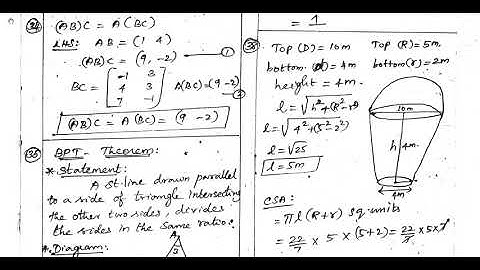 (34) (AB)C = A(BC)
LHS: AB = (1 4)
(AB)C = (9, -2) 1
BC = [-1 3
4 3
7 -1] A(BC) = (9 -2) 2
(AB)C = A(BC) = (9 -2)
(35) BPT - Theorem:
* Statement:
A st-line drawn parallel
to a side of triangle intersecting
the other two sides, divides
the sides in the same ratio.
* Diagram:
A
= 1
Top (D) = 10m Top (R) = 5m
bottom (d) = 4m bottom(r) = 2m
height = 4m.
l = √h²+(R-r)²
l = √4²+(5-2)²
l = √25
l = 5m
10m
h 4m.
4m
CSA:
= πl(R+r) sq.units
= 22/7 × 5 × (5+2) = 22/7 × 5 × 7